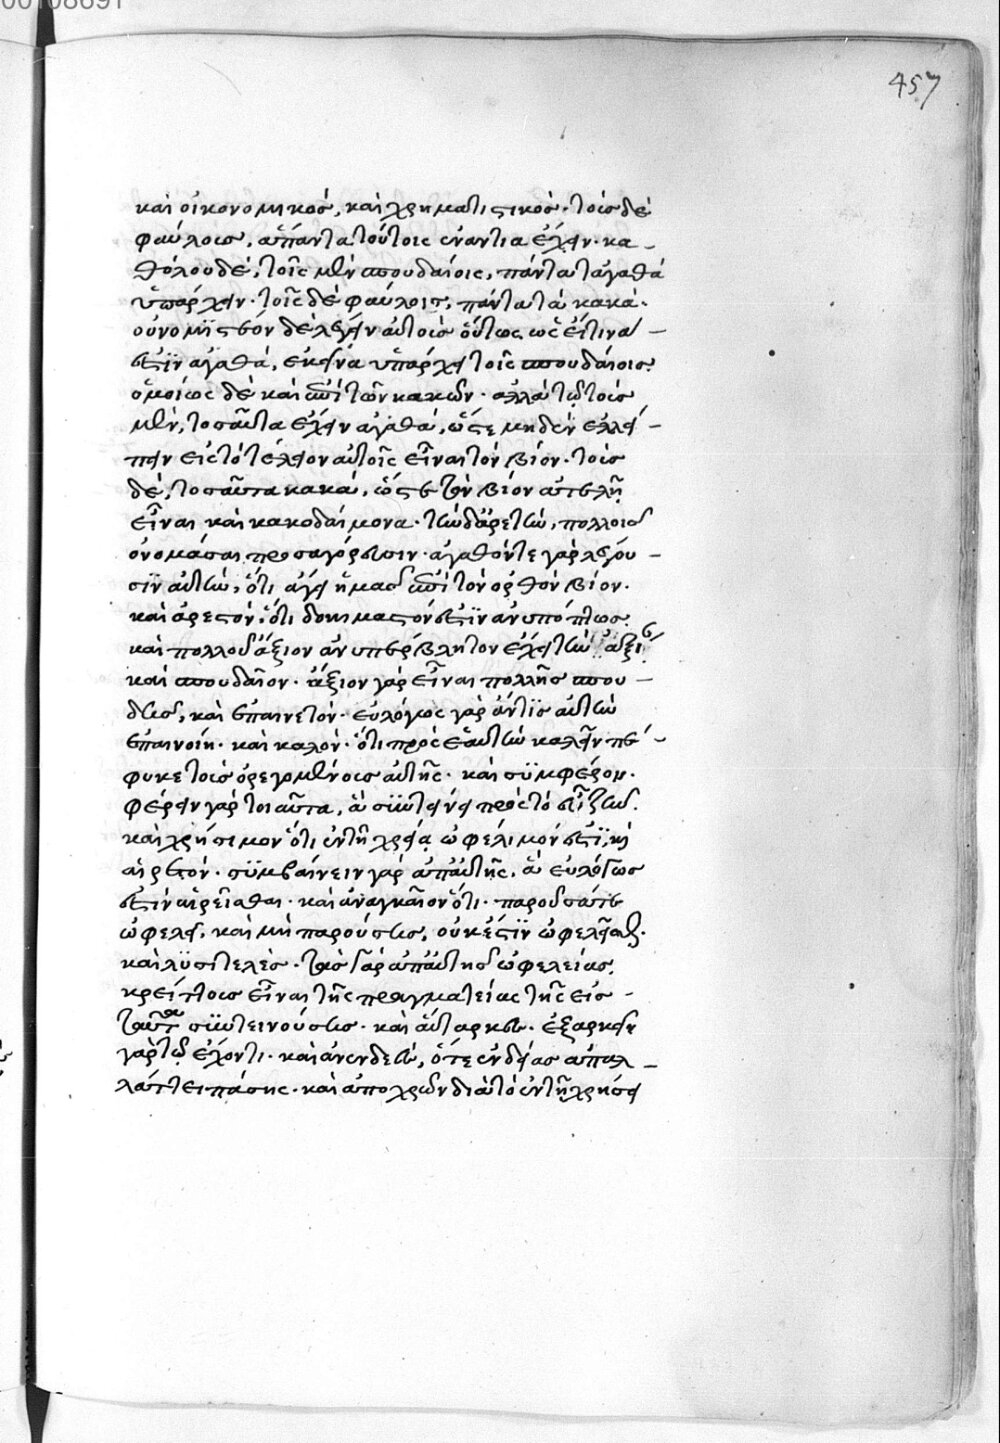 00108691
457
καὶ οἰκονομικός, καὶ χρηματιστικός· τοῖς δὲ
φαύλοις, ἅπαντα τούτοις ἐναντία ἔχειν· κα-
θόλου δὲ, τοῖς μὲν σπουδαίοις, πάντα τἀγαθὰ
ὑπάρχειν· τοῖς δὲ φαύλοις, πάντα τὰ κακά·
οὐ νομϊστέον δὲ λέγειν αὐτοὺς οὕτως ὡς εἴ τινα -
ἐστϊν ἀγαθά, ἐκεῖνα ὑπάρχει τοῖς σπουδαίοις.
ὁμοίως δὲ καὶ ἐπὶ τῶν κακῶν· ἀλλὰ τῷ τοὺς
μὲν, τοσαῦτα ἔχειν ἀγαθὰ, ὥστε μηδὲν ἐλλεί -
πειν εἰς τὸ τέλειον αὐτοῖς εἶναι τὸν βίον· τοὺς
δὲ, τοσαῦτα κακά, ὥστε τὸν βίον ἀτελῆ
εἶναι καὶ κακοδαίμονα· τὴν δ' ἀρετὴν, πολλοῖς
ὀνόμασι προσαγορεύουσιν· ἀγαθόν τε γὰρ λέγου -
σϊν αὐτὴν, ὅτι ἄγει ἡμᾶς ἐπὶ τὸν ὀρθὸν βίον·
καὶ ἀρεστόν· ὅτι δοκιμαστόν ἐστϊν ἀνυπόπτως.
καὶ πολλοῦ ἄξιον ἀνυπέρβλητον ἔχει τὴν ἀξί
καὶ σπουδαῖον· ἄξιον γὰρ εἶναι πολλῆς σπου -
δῆς, καὶ ἐπαινετόν· εὐλόγως γὰρ ἄν τϊς αὐτὴν
ἐπαινοίη· καὶ καλὸν· ὅτι πρὸς ἑαυτὴν καλεῖν πέ -
φυκε τοὺς ὀρεγομένους αὐτῆς· καὶ σϋμφέρον·
φέρειν γὰρ τοιαῦτα, ἃ σϋντείνει πρὸς τὸ εὖ ζῆν.
καὶ χρήσιμον ὅτι ἐν τῇ χρείᾳ ὠφέλιμόν ἐστϊ, καὶ
αἱρετόν· σϋμβαίνειν γὰρ ἀπ' αὐτῆς, ἃ εὐλόγως
ἐστὶν αἱρεῖσθαι· καὶ ἀναγκαῖον ὅτι· παροῦσά τε
ὠφελεῖ, καὶ μὴ παρούσης, οὐκ ἔστϊν ὠφελεῖσθαι·
καὶ λϋσιτελὲς· τὰς γὰρ ἀπ' αὐτῆς ὠφελείας,
κρείττους εἶναι τῆς πραγματείας τῆς εἰς -
ταύτας σϋντεινούσης· καὶ αὔταρκες· ἐξαρκεῖν
γὰρ τῷ ἔχοντι· καὶ ἀνενδεές, ὅτι ἐνδείας ἀπαλ -
λάττει πάσης· καὶ ἀποχρῶν διὰ τὸ ἐν τῇ χρήσει